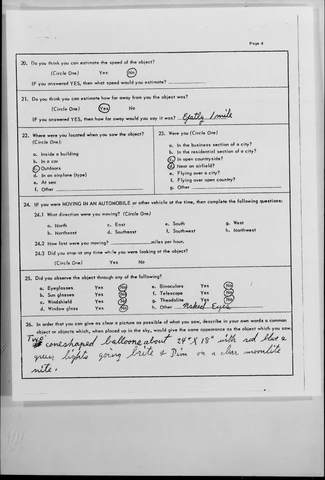 Page 4
20. Do you think you can estimate the speed of the object?
(Circle One) Yes No
IF you answered YES, then what speed would you estimate?
21. Do you think you can estimate how far away from you the object was?
(Circle One) Yes No
IF you answered YES, then how far away would you say it was? 1 mile
22. Where were you located when you saw the object? 23. Were you (Circle One)
(Circle One):
a. Inside a building a. In the business section of a city?
b. In a car b. In the residential section of a city?
c. Outdoors c. In open countryside?
d. In an airplane (type) d. Near an airfield?
e. At sea e. Flying over a city?
f. Other f. Flying over open country?
g. Other
24. IF you were MOVING IN AN AUTOMOBILE or other vehicle at the time, then complete the following questions:
24.1 What direction were you moving? (Circle One)
a. North c. East e. South g. West
b. Northeast d. Southeast f. Southwest h. Northwest
24.2 How fast were you moving? miles per hour.
24.3 Did you stop at any time while you were looking at the object?
(Circle One) Yes No
25. Did you observe the object through any of the following?
a. Eyeglasses Yes No e. Binoculars Yes No
b. Sun glasses Yes No f. Telescope Yes No
c. Windshield Yes No g. Theodolite Yes No
d. Window glass Yes No h. Other Naked Eyes
26. In order that you can give as clear a picture as possible of what you saw, describe in your own words a common
object or objects which, when placed up in the sky, would give the same appearance as the object which you saw.
Two coneshaped balloons about 24" X 18" with red blue &
green lights going brite & Dim on a clear moonlite
nite.